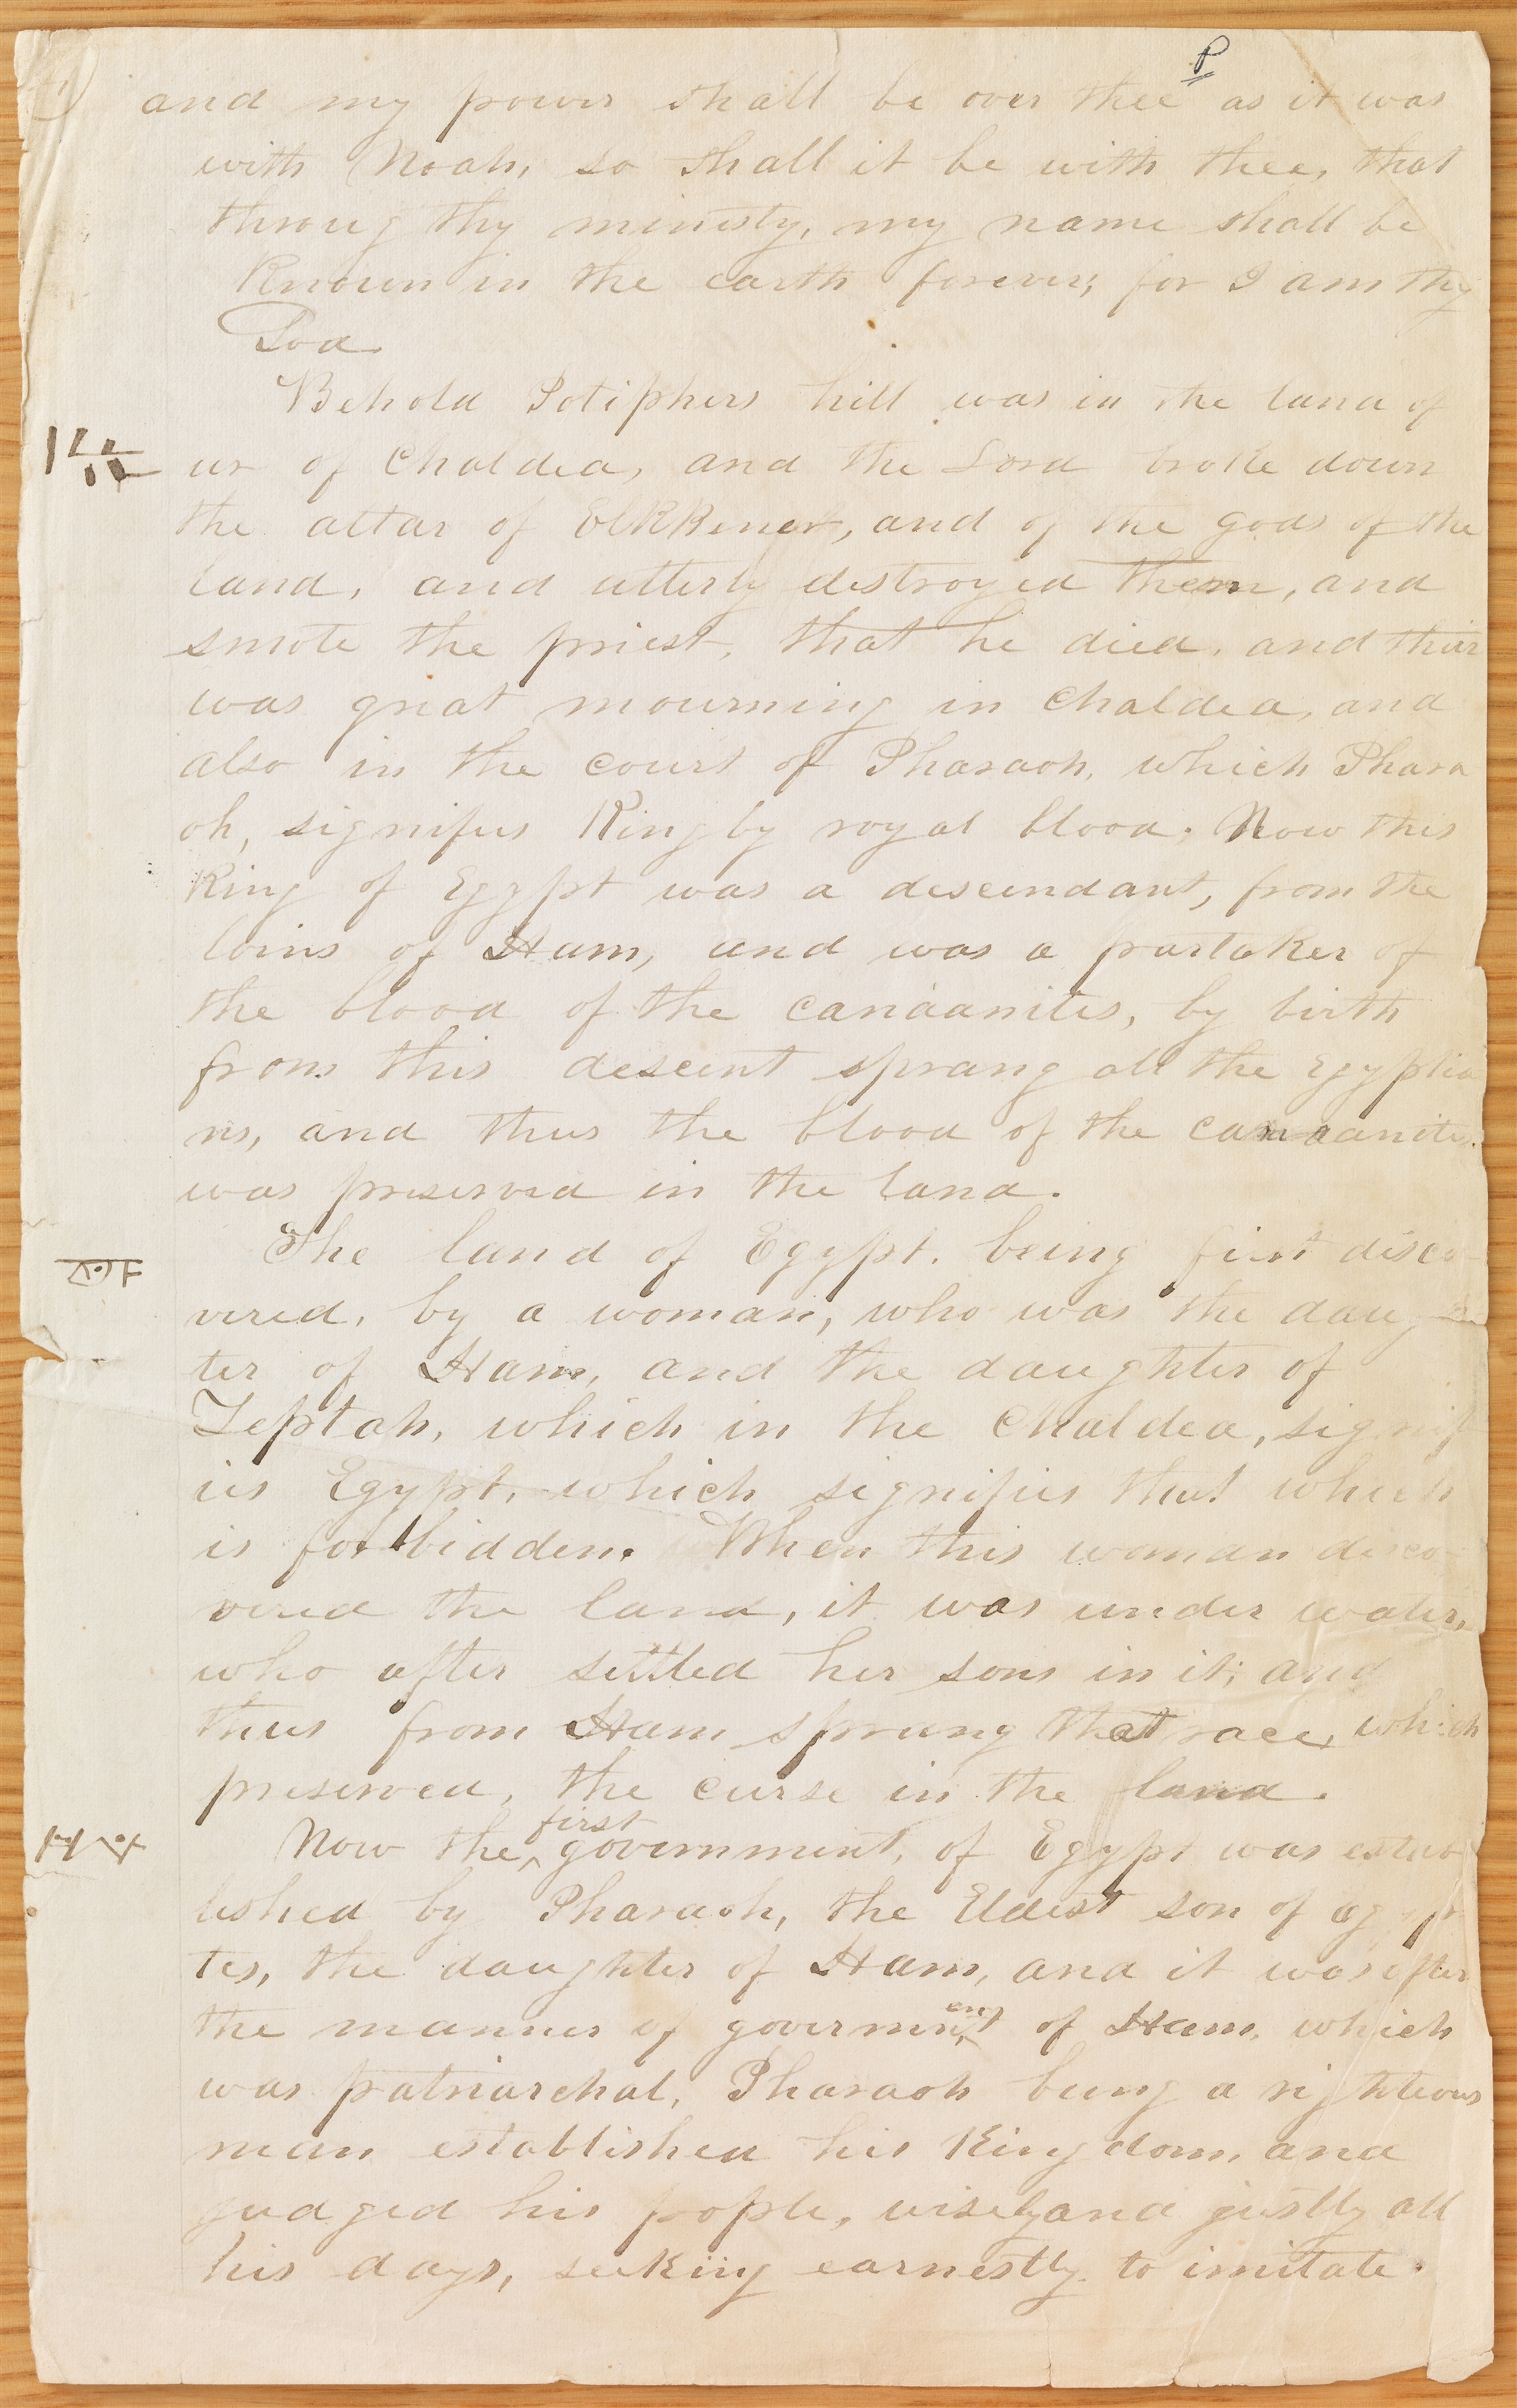 P
and my power shall be over thee as it was
with Noah, so shall it be with thee, that
throug thy ministy, my name shall be
Known in the earth forever, for I am thy
God
Behold Potiphers hill was in the land of
ur of Chaldea, and the Lord broke down
the altar of Elkkener, and of the gods of the
land, and utterly destroyed them, and
smote the priest, that he died, and thier
was great mourning in Chaldea, and
also in the court of Pharaoh, which Phara
oh, signifies King by royal blood, Now this
King of Egypt was a descendant, from the
loins of Ham, and was a partaker of
the blood of the canaanites, by birth
from this descent sprang all the Egyptia
ns, and thus the blood of the canaanites
was preserved in the land.
The land of Egypt, being first disco-
vered, by a woman, who was the daugh
ter of Ham, and the daughter of
Zeptah, which in the Chaldea, signif
ies Egypt, which signifies that which
is forbidden. When this woman disco-
vered the land, it was under water,
who after settled her sons in it; and
thus from Ham sprung that race, which
preserved, the curse in the land.
Now the first government, of Egypt was estab
lished by Pharaoh, the Eldest son of
tes, the daughter of Ham, and it was after
the manner of government of Ham, which
was patriarchal, Pharaoh being a righteous
man established his Kingdom, and
judged his pople, wisely and justly all
his days, seeking earnestly to imitate